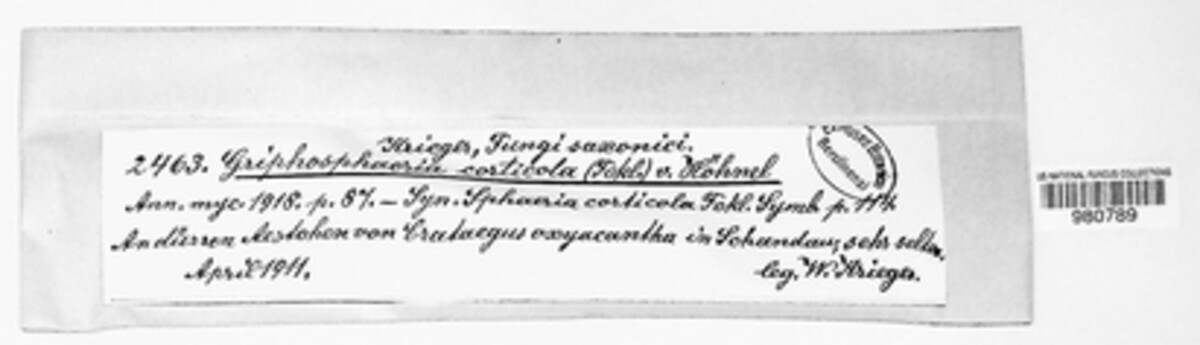 Krieger, Fungi saxonici.
2463. Griphosphaeria corticola (Fckl.) v. Höhnel
Ann. myc. 1918. p. 87. – Syn. Sphaeria corticola Fckl. Symb. p. 114
An dürren Aestchen von Crataegus oxyacantha in Schandau, sehr selten.
April 1911.
leg. W. Krieger.
US NATIONAL FUNGUS COLLECTIONS
980789